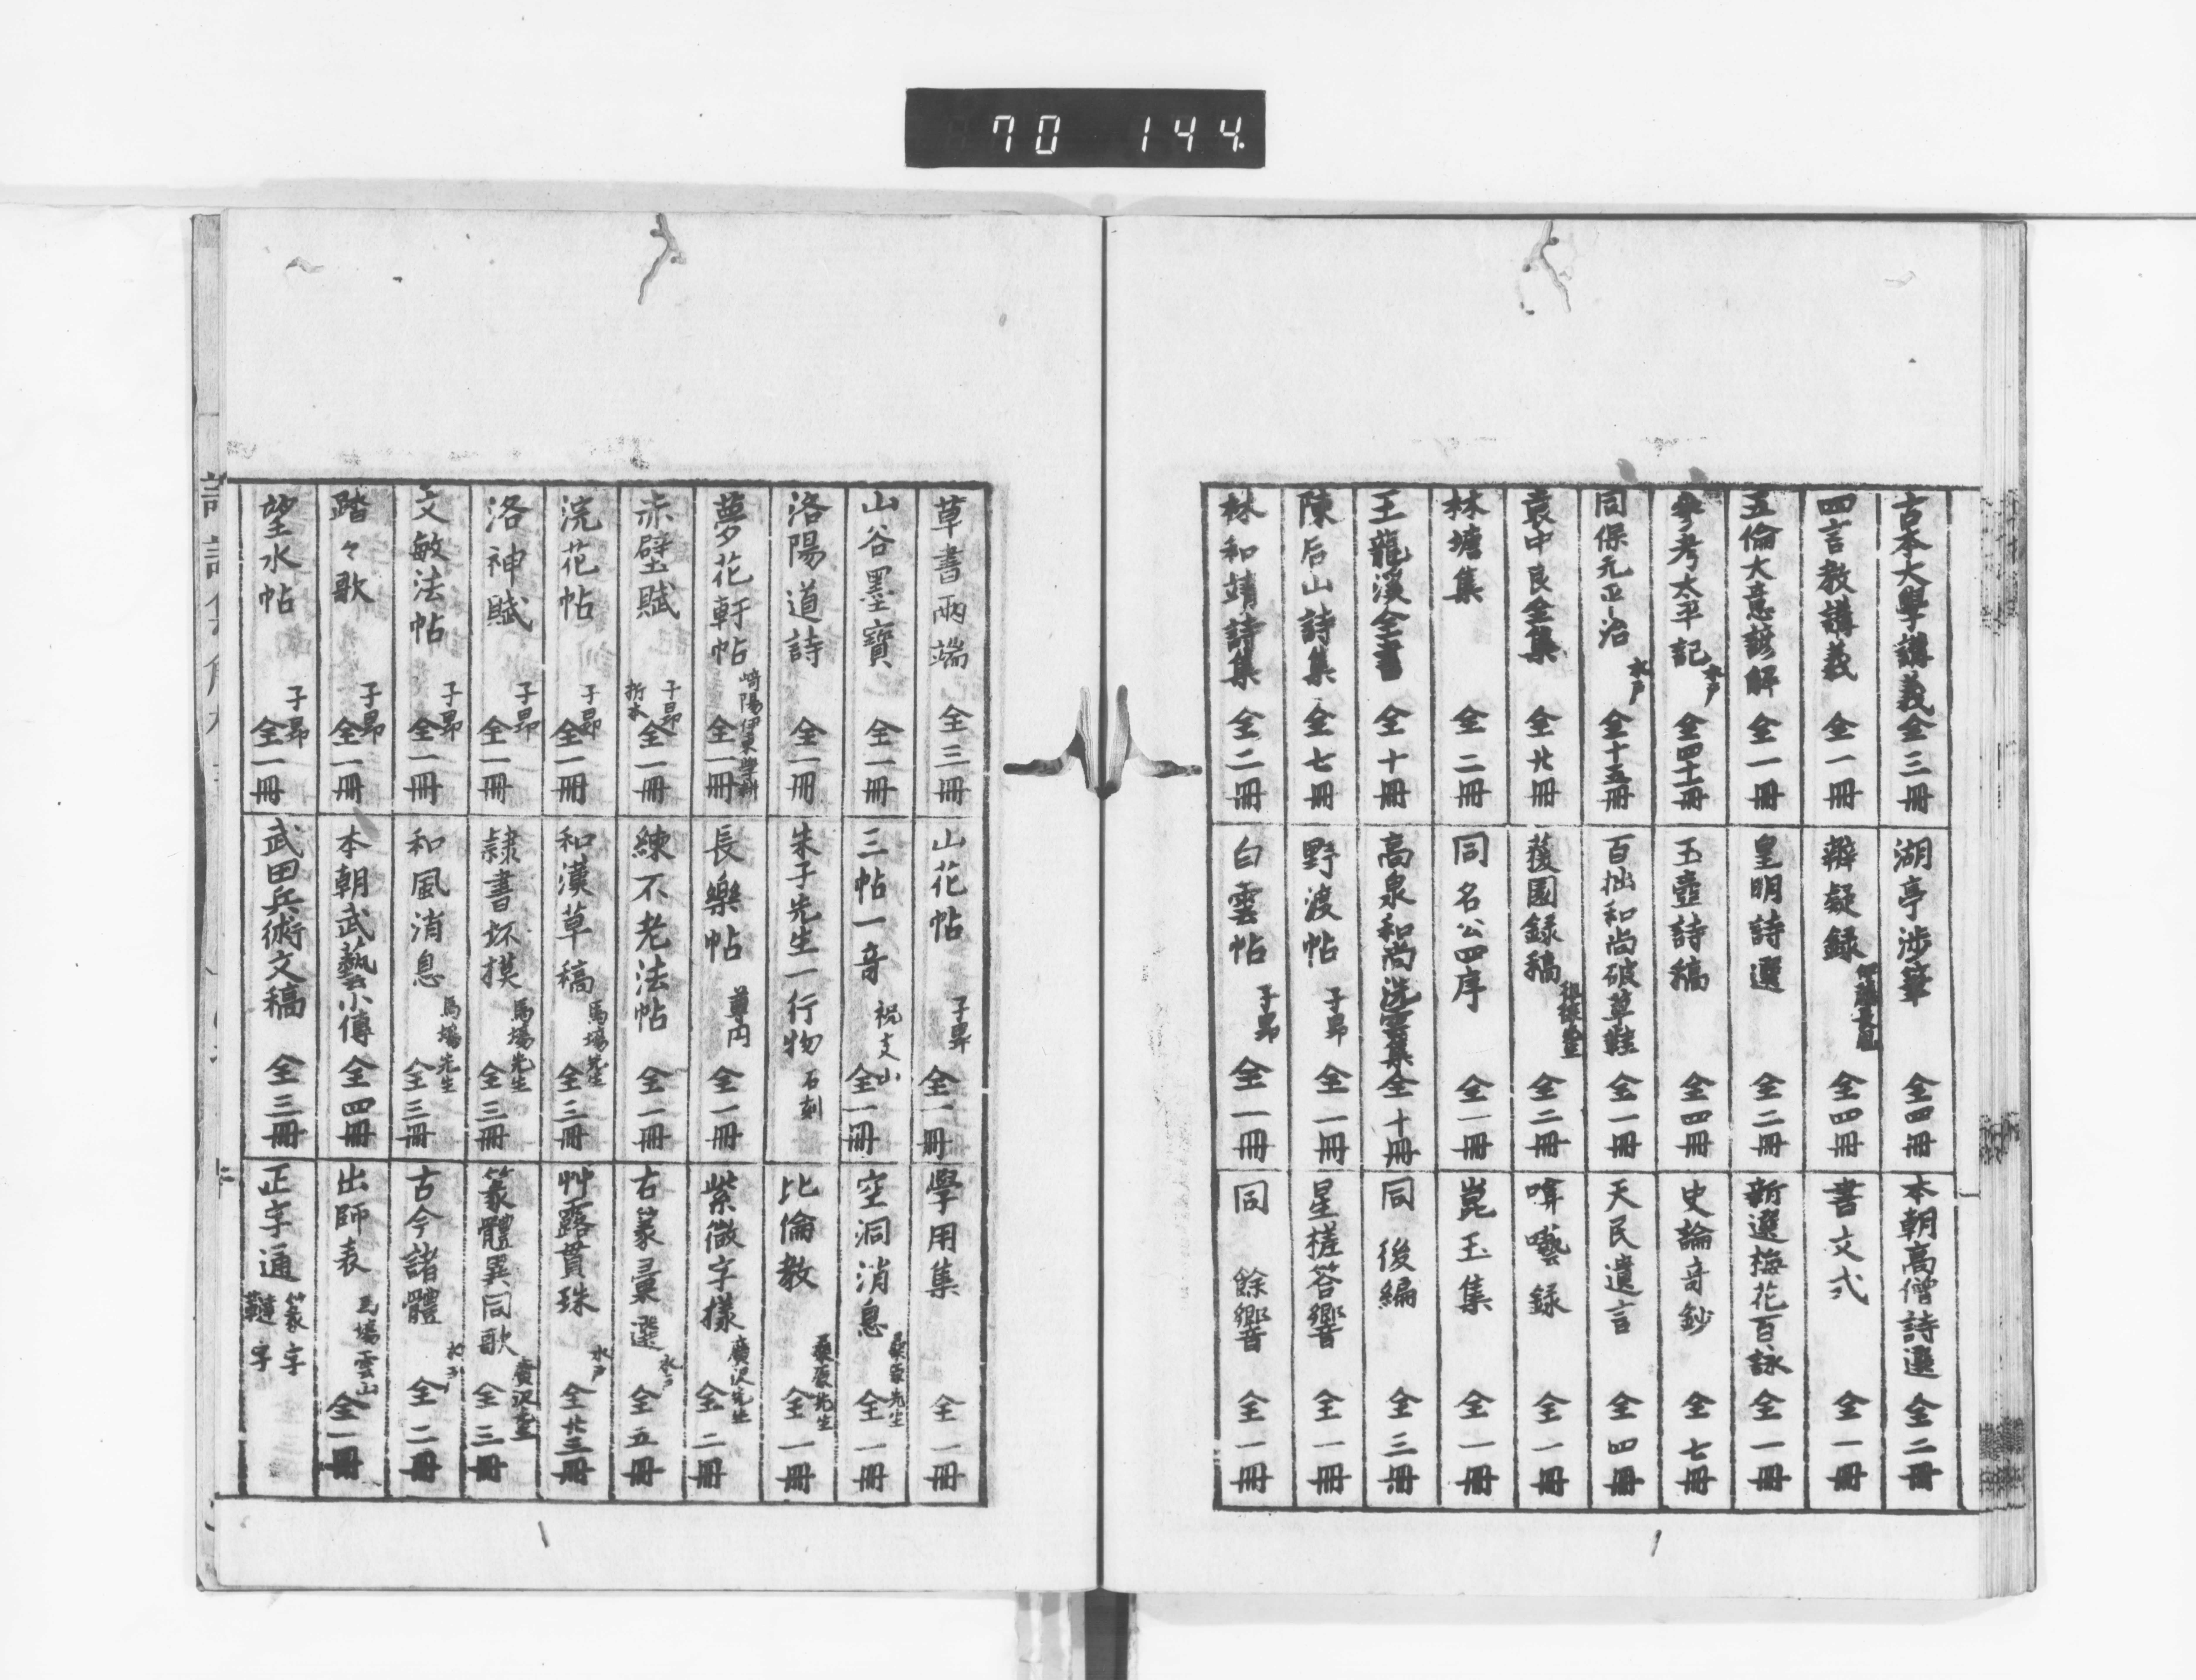 70 144.
古本大學講義全三冊
四言教講義 全一冊
五倫大意諺解 全一冊
參考太平記 水戸 全四十一冊
同保元平治 水戸 全十五冊
袁中良全集 全廿冊
林塘集 全二冊
王龍溪全書 全十冊
陳后山詩集 全七冊
林和靖詩集 全二冊
湖亭渉筆 全四冊
辨疑録 全四冊
皇明詩選 全二冊
玉壺詩稿 全四冊
百拙和尚破草鞋 全一冊
蘐園録稿 全二冊
同名公四序 全一冊
高泉和尚洗雲集全十冊
野渡帖 子昂 全一冊
白雲帖 子昂 全一冊
本朝高僧詩選 全二冊
書文式 全一冊
新選梅花百詠 全一冊
史論奇鈔 全七冊
天民遺言 全四冊
嚊囈録 全一冊
崑玉集 全一冊
同後編 全三冊
星槎答響 全一冊
同 餘響 全一冊
草書兩端 全三冊
山谷墨寶 全一冊
洛陽道詩 全一冊
夢花軒帖 全一冊
赤壁賦 子昂 折本 全一冊
浣花帖 子昂 全一冊
洛神賦 子昂 全一冊
文敏法帖 子昂 全一冊
踏々歌 子昂 全一冊
望水帖 子昂 全一冊
山花帖 子昂 全一冊
三帖一音 祝支山 全一冊
朱子先生一行物 石刻
長樂帖 尊円 全一冊
練不老法帖 全一冊
和漢草稿 馬場先生 全三冊
隷書坏撲 馬場先生 全三冊
和風消息 馬場先生 全三冊
本朝武藝小傳 全四冊
武田兵術文稿 全三冊
學用集 全一冊
空洞消息 桑原先生 全一冊
比倫教 桑原先生 全一冊
紫微字樣 廣沢先生 全二冊
古篆彙選 水戸 全五冊
艸露貫珠 水戸 全廿三冊
篆體異同歌 全三冊
古今諸體 全二冊
出師表 馬場雲山 全一冊
正字通 篆字 韃字